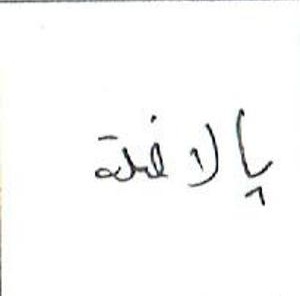 بالاضافة